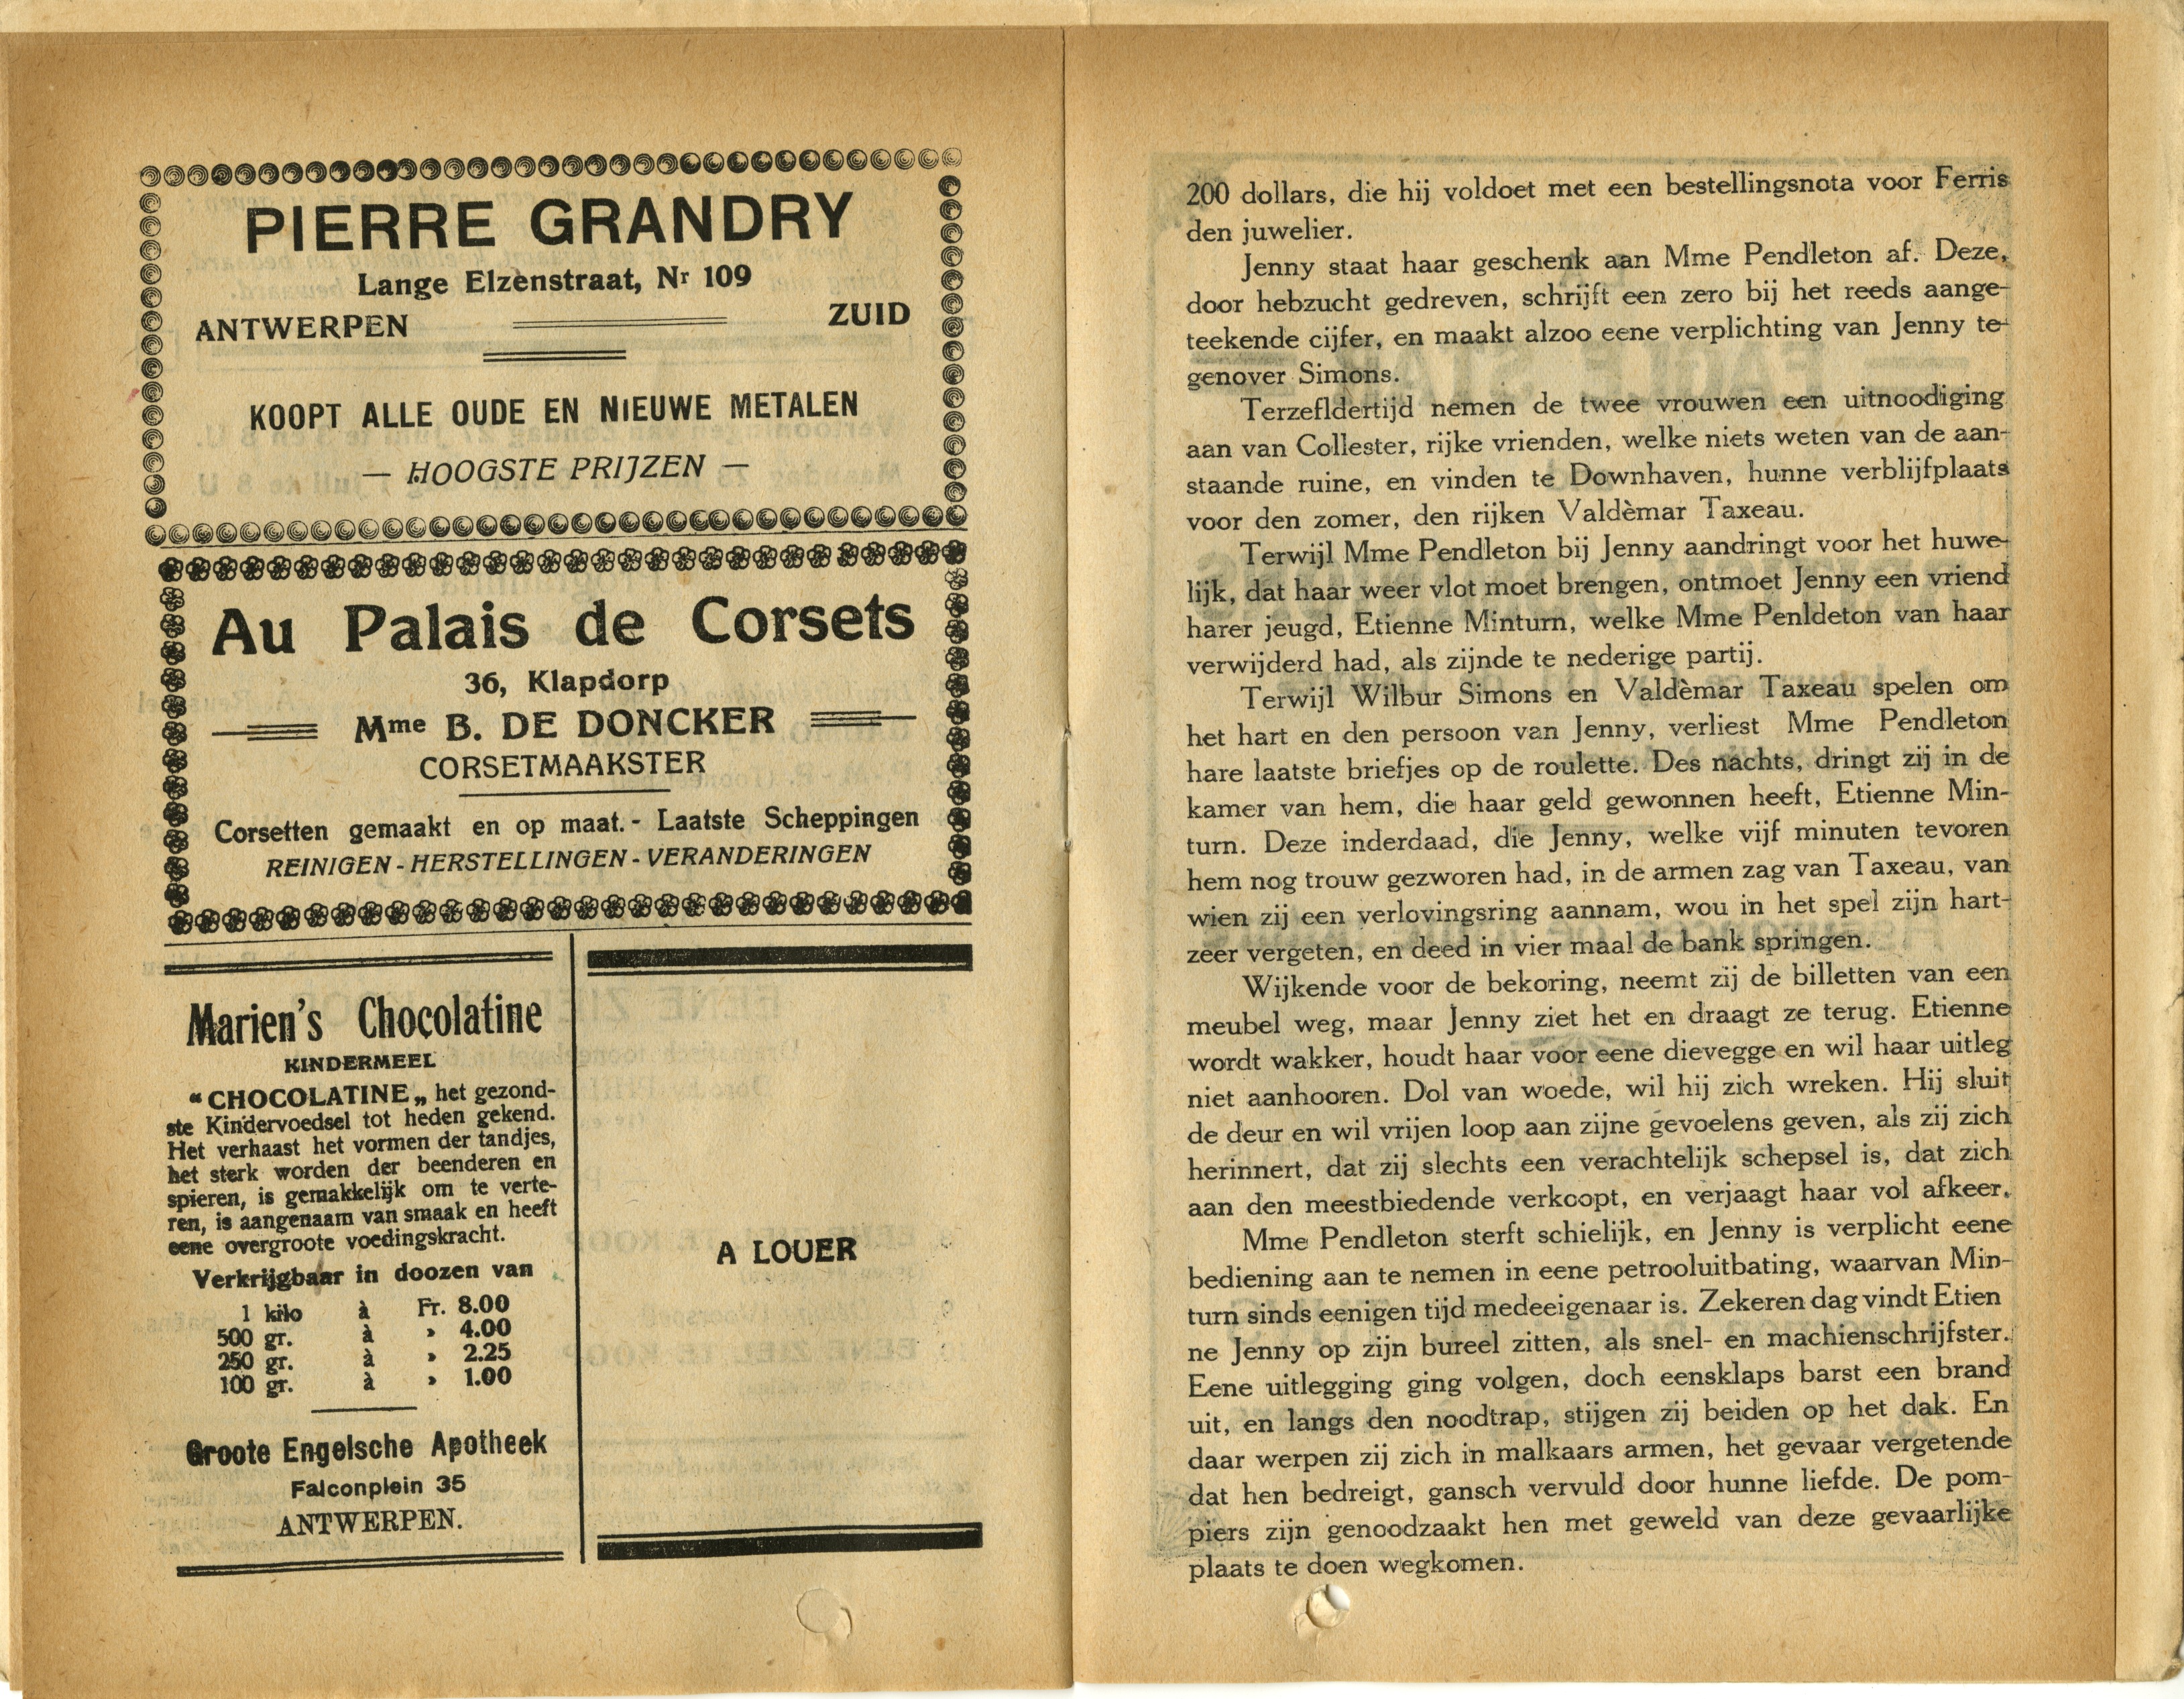 PIERRE GRANDRY
Lange Elzenstraat, Nr 109
ANTWERPEN
ZUID
KOOPT ALLE OUDE EN NIEUWE METALEN
— HOOGSTE PRIJZEN —
Au Palais de Corsets
36, Klapdorp
Mme B. DE DONCKER
CORSETMAAKSTER
Corsetten gemaakt en op maat. - Laatste Scheppingen
REINIGEN - HERSTELLINGEN - VERANDERINGEN
Marien's Chocolatine
KINDERMEEL
“CHOCOLATINE„ het gezond-
ste Kindervoedsel tot heden gekend.
Het verhaast het vormen der tandjes,
het sterk worden der beenderen en
spieren, is gemakkelijk om te verte-
ren, is aangenaam van smaak en heeft
eene overgroote voedingskracht.
Verkrijgbaar in doozen van
1 kilo à Fr. 8.00
500 gr. à » 4.00
250 gr. à » 2.25
100 gr. à » 1.00
Groote Engelsche Apotheek
Falconplein 35
ANTWERPEN.
A LOUER
200 dollars, die hij voldoet met een bestellingsnota voor Ferris
den juwelier.
Jenny staat haar geschenk aan Mme Pendleton af. Deze,
door hebzucht gedreven, schrijft een zero bij het reeds aange-
teekende cijfer, en maakt alzoo eene verplichting van Jenny te-
genover Simons.
Terzefldertijd nemen de twee vrouwen een uitnoodiging
aan van Collester, rijke vrienden, welke niets weten van de aan-
staande ruine, en vinden te Downhaven, hunne verblijfplaats
voor den zomer, den rijken Valdèmar Taxeau.
Terwijl Mme Pendleton bij Jenny aandringt voor het huwe-
lijk, dat haar weer vlot moet brengen, ontmoet Jenny een vriend
harer jeugd, Etienne Minturn, welke Mme Penldeton van haar
verwijderd had, als zijnde te nederige partij.
Terwijl Wilbur Simons en Valdèmar Taxeau spelen om
het hart en den persoon van Jenny, verliest Mme Pendleton
hare laatste briefjes op de roulette. Des nachts, dringt zij in de
kamer van hem, die haar geld gewonnen heeft, Etienne Min-
turn. Deze inderdaad, die Jenny, welke vijf minuten tevoren
hem nog trouw gezworen had, in de armen zag van Taxeau, van
wien zij een verlovingsring aannam, wou in het spel zijn hart-
zeer vergeten, en deed in vier maal de bank springen.
Wijkende voor de bekoring, neemt zij de billetten van een
meubel weg, maar Jenny ziet het en draagt ze terug. Etienne
wordt wakker, houdt haar voor eene dievegge en wil haar uitleg
niet aanhooren. Dol van woede, wil hij zich wreken. Hij sluit
de deur en wil vrijen loop aan zijne gevoelens geven, als zij zich
herinnert, dat zij slechts een verachtelijk schepsel is, dat zich
aan den meestbiedende verkoopt, en verjaagt haar vol afkeer.
Mme Pendleton sterft schielijk, en Jenny is verplicht eene
bediening aan te nemen in eene petrooluitbating, waarvan Min-
turn sinds eenigen tijd medeeigenaar is. Zekeren dag vindt Etien
ne Jenny op zijn bureel zitten, als snel- en machienschrijfster.
Eene uitlegging ging volgen, doch eensklaps barst een brand
uit, en langs den noodtrap, stijgen zij beiden op het dak. En
daar werpen zij zich in malkaars armen, het gevaar vergetende
dat hen bedreigt, gansch vervuld door hunne liefde. De pom-
piers zijn genoodzaakt hen met geweld van deze gevaarlijke
plaats te doen wegkomen.